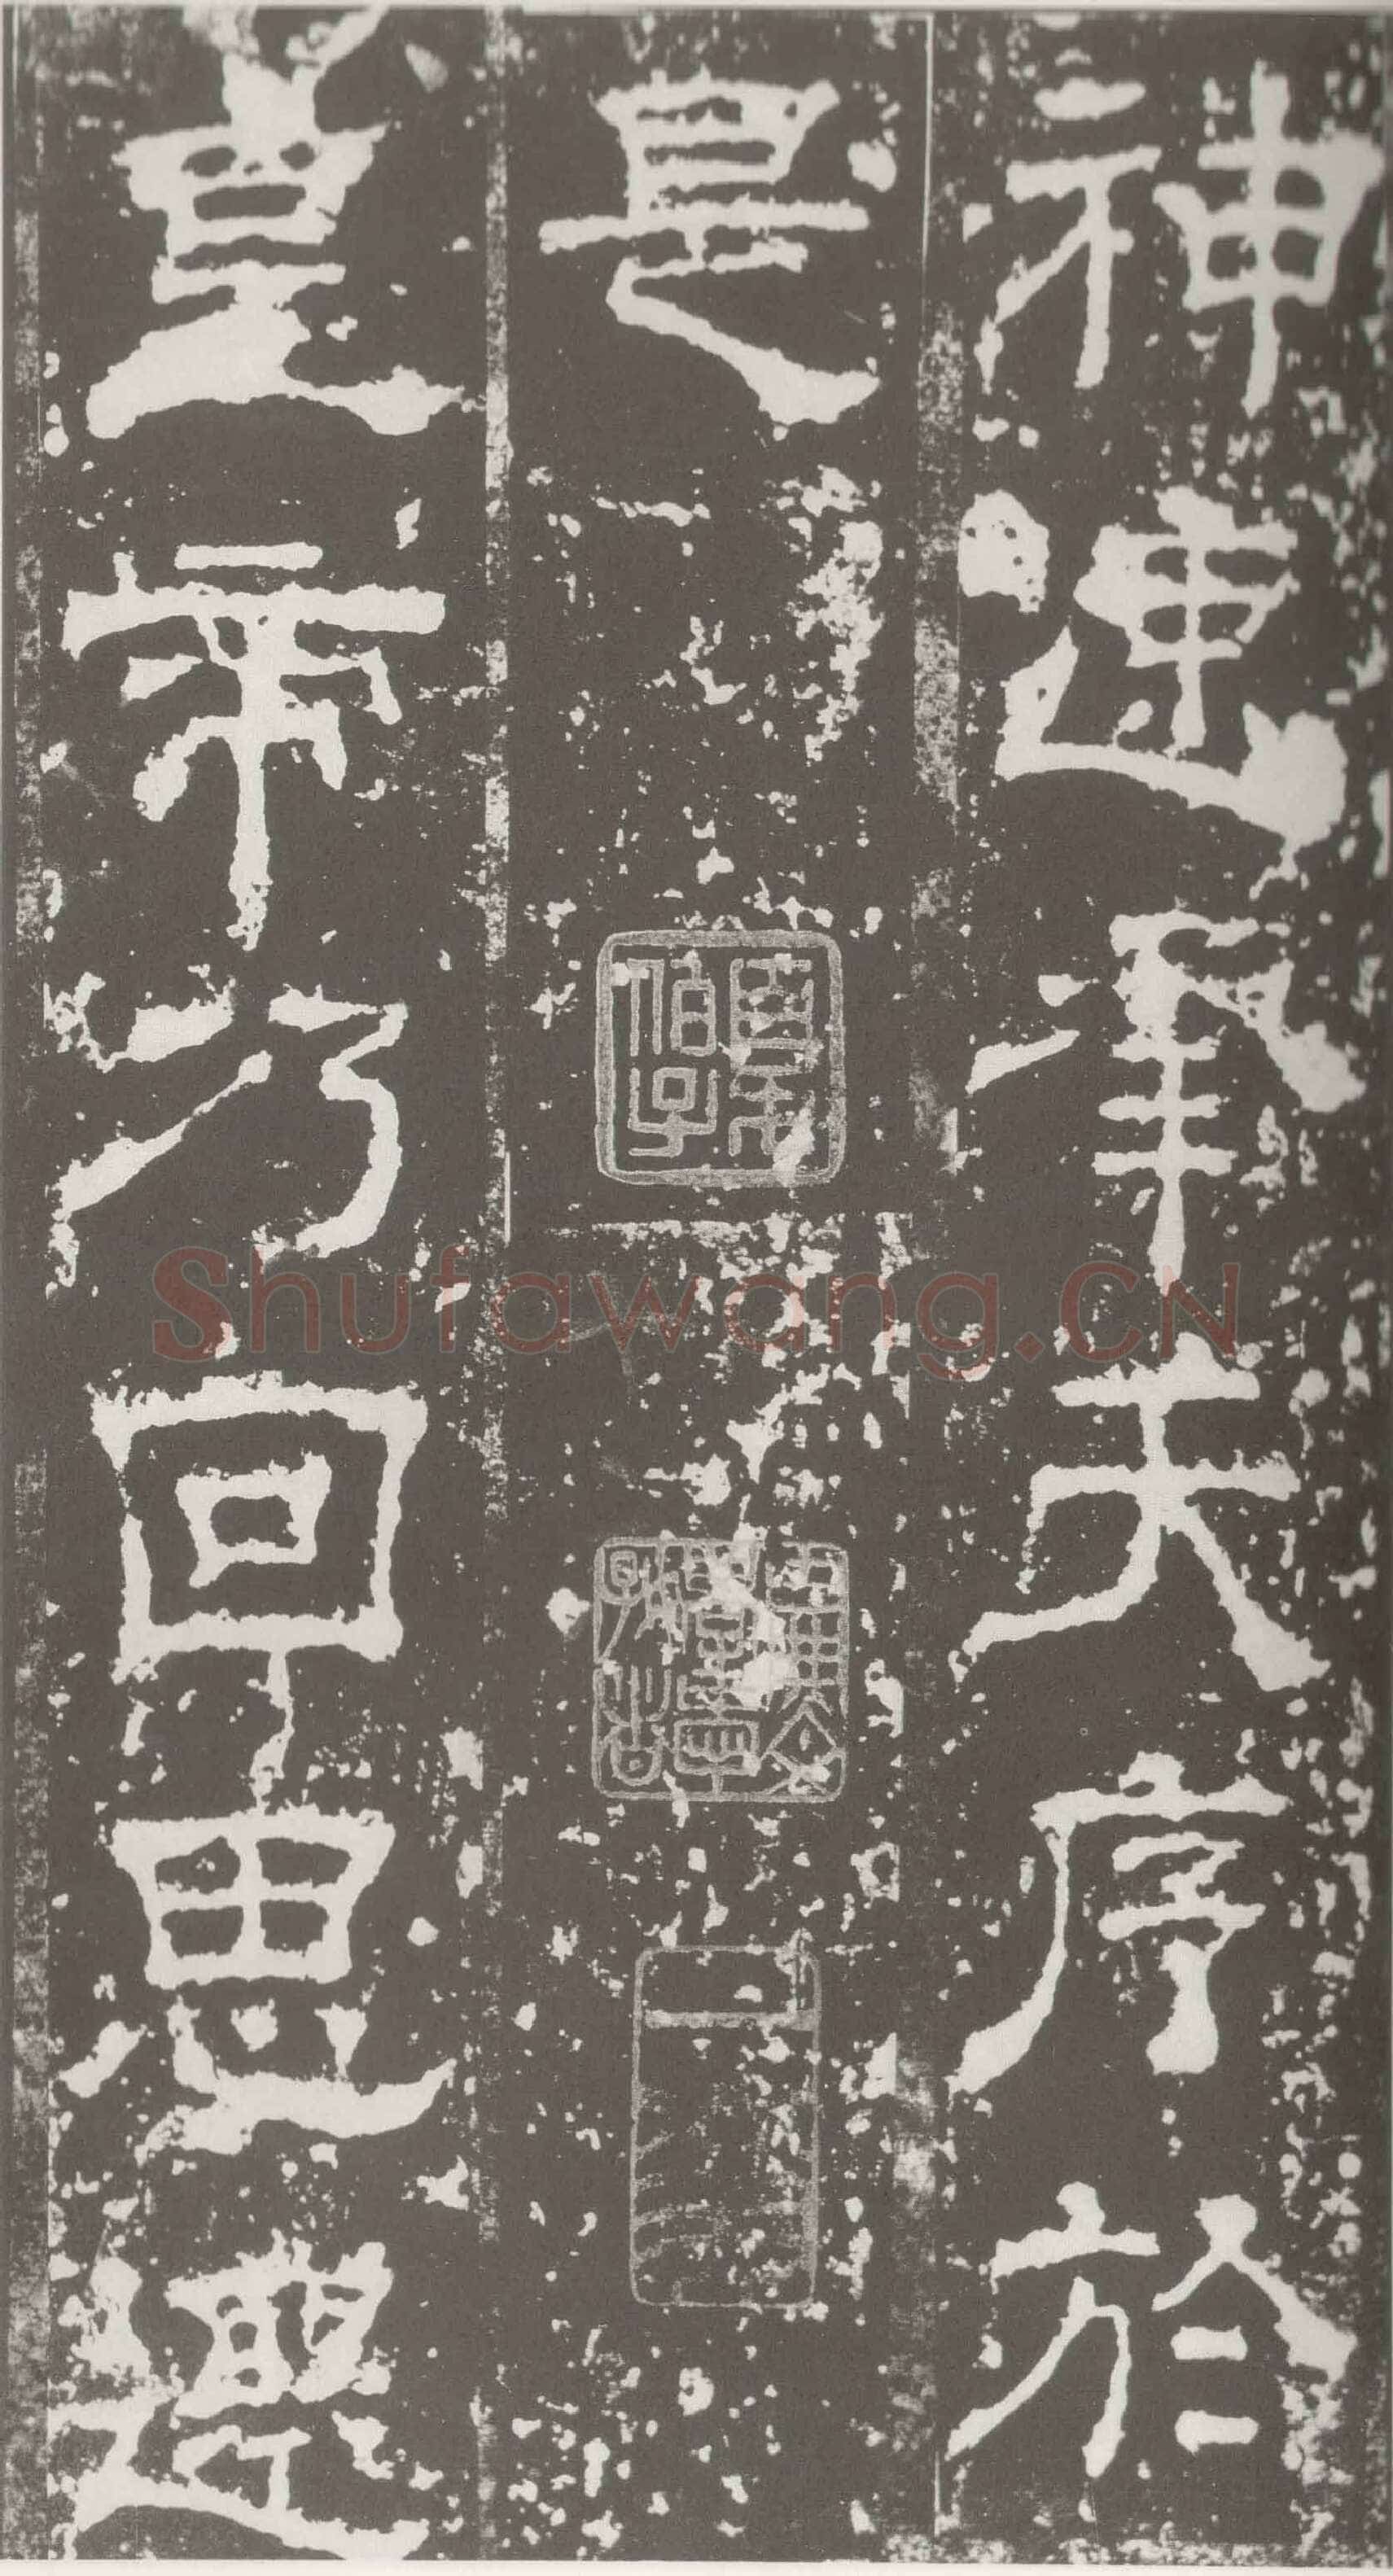 神速承天序於
是
皇帝乃回思遷
Shufawang.CN